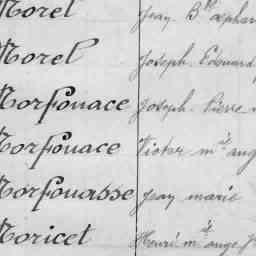 Morel Jean B^te
Morel Joseph Edouard
Morfouace Joseph Pierre
Morfouace Victor m^ie ange
Morfouasse Jean marie
Moricet Henri m^ie ange